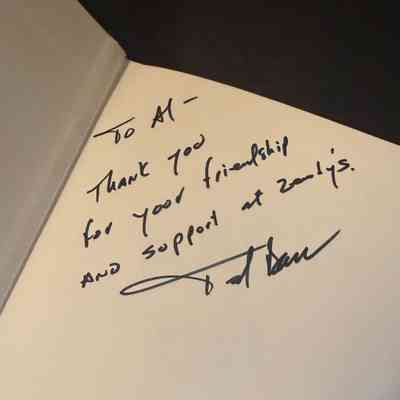 To Al-
Thank you
for your friendship
and support at